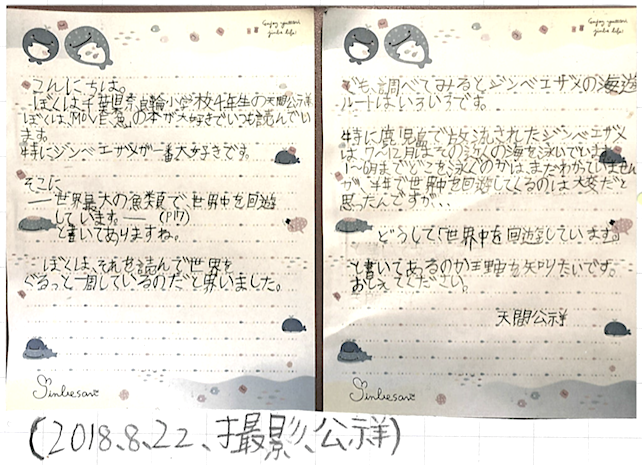 こんにちは。
ぼくは千葉県奈良輪小学校4年生の天間公祥
ぼくは、「MOVE魚」の本が大好きでいつも読んでい
ます。
特にジンベエザメが一番大好きです。
そこに
―世界最大の魚類で、世界中を回遊
しています。― (P17)
と書いてありますね。
ぼくは、それを読んで世界を
ぐるっと一周しているのだと思いました。
Jinbesan
Enjoy yuttari
jinbe life!
でも、調べてみるとジンベエザメの海遊
ルートはいろいろです。
特に鹿児島で放流されたジンベエザメ
は、7〜12月はその近くの海を泳いでいます。
1〜6月までどこを泳ぐのかは、まだわかっていません
が、半年で世界中を回遊してくるのは大変だと
思ったんですが、、
どうして「世界中を回遊しています。
と書いてあるのか理由を知りたいです。
おしえてください。
天間公祥
Jinbesan
(2018.8.22、撮影、公祥)